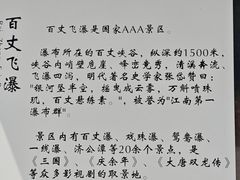 百丈飞瀑
百丈飞瀑是国家AAA景区。
瀑布所在的百丈峡谷，纵深约1500米，
峡谷内峭壁危崖、峰峦竞秀，清溪奔流、
飞瀑四泻，明代著名史学家张岱赞曰：
"银河坠半空，摇曳成云雾，万斛喷珠
玑，百丈悬练素。"，被誉为"江南第一
瀑布群"。
景区内有百丈瀑、戏珠瀑、鸳鸯瀑、
一线瀑、济公潭等20余个景点，是
《三国》、《庆余年》、《大唐双龙传》
等众多影视剧的取景地。